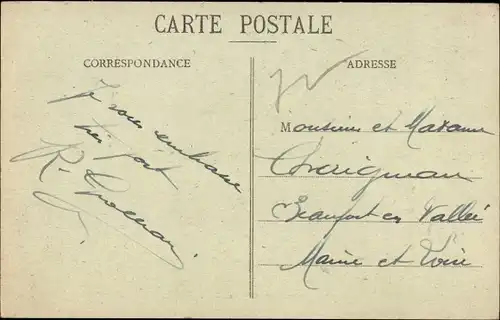 CARTE POSTALE
CORRESPONDANCE
ADRESSE
Je vous embrasse
très fort
R.
Monsieur et Madame
Beaufort en Vallée
Maine et Loire